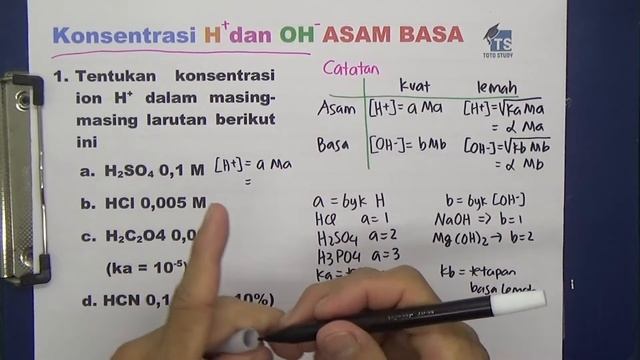 Konsentrasi H+ dan OH- ASAM BASA
TS
TOTO STUDY
1. Tentukan konsentrasi
ion H+ dalam masing-
masing larutan berikut
ini
a. H2SO4 0,1 M [H+] = a Ma
=
b. HCl 0,005 M
c. H2C2O4 0,0
(ka = 10-5)
d. HCN 0,1 10%)
Catatan
kuat lemah
Asam [H+] = a Ma [H+] = √Ka Ma
= α Ma
Basa [OH-] = b Mb [OH-] = √Kb Mb
= α Mb
a = byk H b = byk [OH-]
HCl a = 1 NaOH => b = 1
H2SO4 a = 2 Mg(OH)2 → b = 2
H3PO4 a = 3
Ka = Kb = tetapan
basa